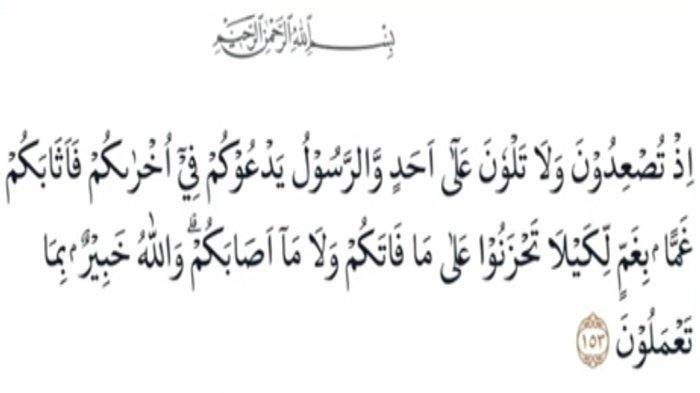 بِسْمِ اللّٰهِ الرَّحْمٰنِ الرَّحِيْمِ
اِذْ تُصْعِدُوْنَ وَلَا تَلْوٗنَ عَلٰٓى اَحَدٍ وَّالرَّسُوْلُ يَدْعُوْكُمْ فِيْٓ اُخْرٰىكُمْ فَاَثَابَكُمْ
غَمًّا ۢبِغَمٍّ لِّكَيْلَا تَحْزَنُوْا عَلٰى مَا فَاتَكُمْ وَلَا مَآ اَصَابَكُمْ ۗ وَاللّٰهُ خَبِيْرٌ ۢبِمَا
تَعْمَلُوْنَ ١٥٣